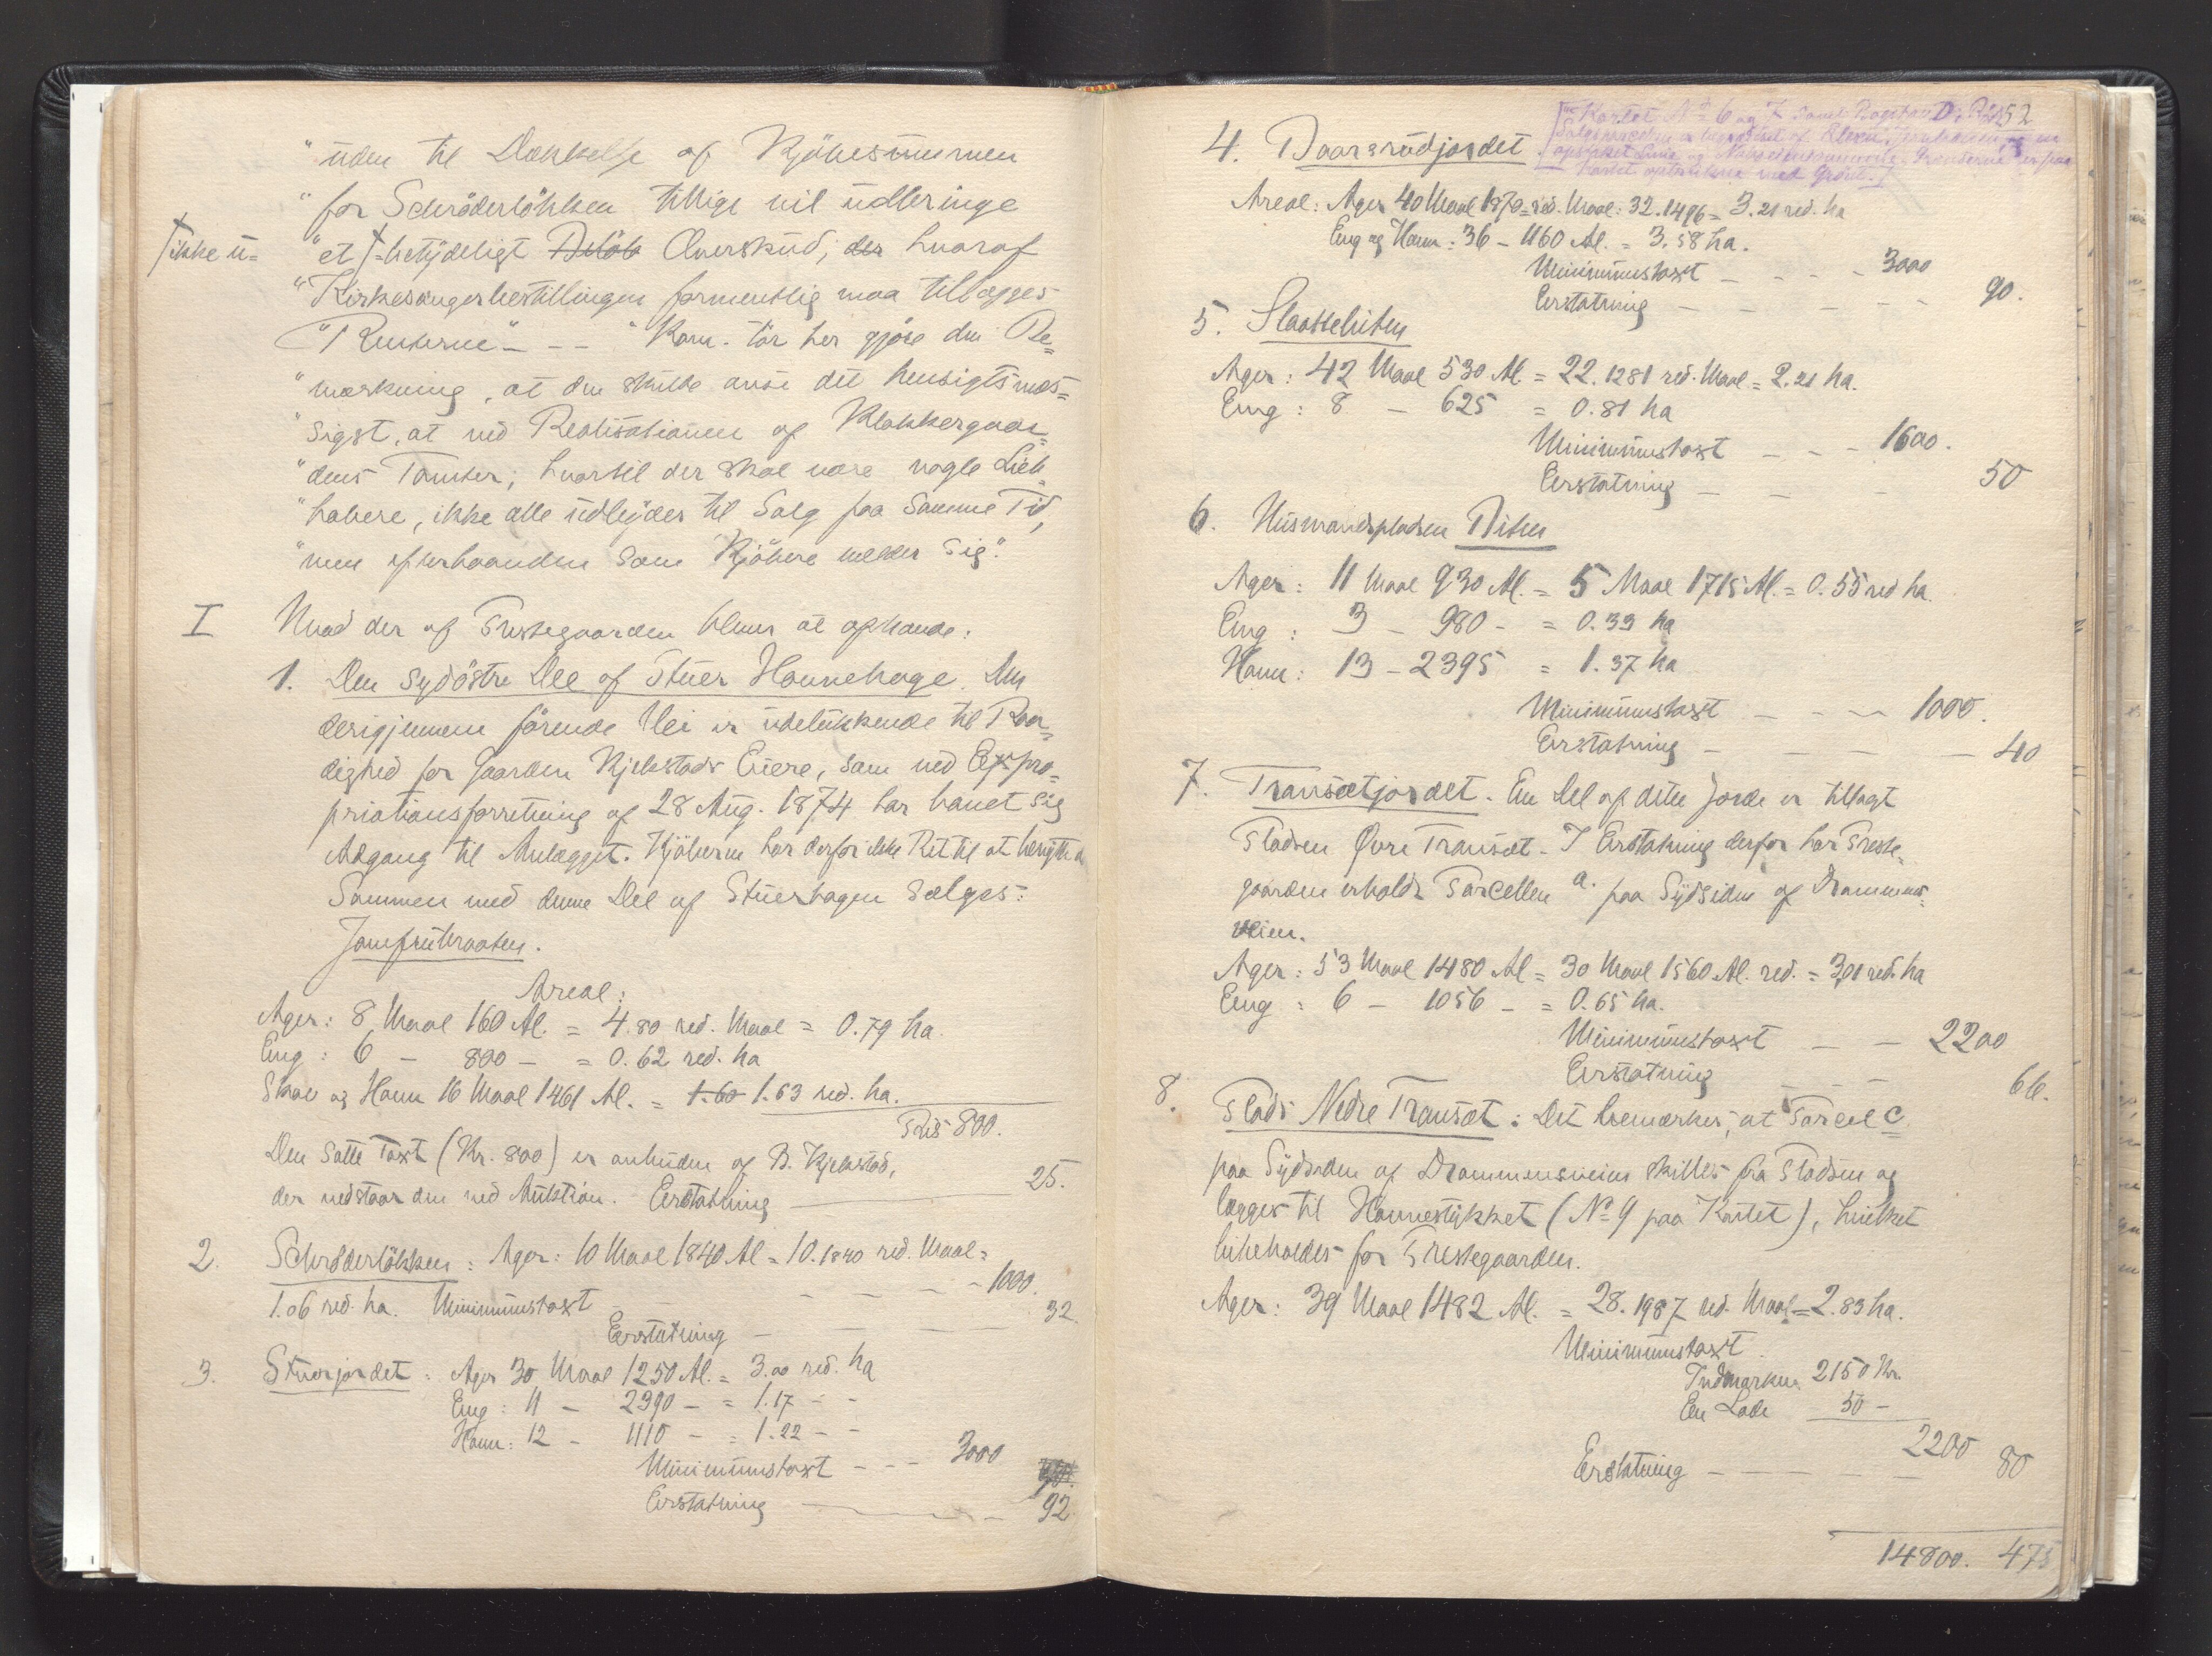 "uden til Dækkelse af Kjöbesummen
"for Schröderlökken tillige vil udbringe
/ikke u= "et /=betydeligt Belöb Overskud; der hvoraf
"Kirkesangerbestillingen formentlig maa tillægges
"Renterne" - - - "Kom. tör her gjöre den Be=
"mærkning, at den skulde anse det hensigtsmæs=
"sigst, at ved Realisationen af Klokkergaar=
"dens Tomter, hvortil der skal være nogle Lieb=
"habere, ikke alle udbydes til Salg paa samme Tid,
"men efterhaanden som Kjöbere melder sig".
I Hvad der af Prestegaarden bliver at afhænde:
1. Den sydöstre Del af Stuer Havnehage. Den
derigjennem förende Vei er udelukkende til Raa=
dighed for Gaarden Kjekstads Eiere, som ved Expro=
priationsforretning af 28 Aug. 1874 har havet sig
Adgang til Anlægget. Kjöberne har derfor ikke Ret til at benytte d
Sammen med denne Del af Stuerhagen sælges:
Jomfrubraaten.
Areal:
Ager: 8 Maal 160 Al. = 4.80 red. Maal = 0.79 ha.
Eng: 6 - 800 - = 0.62 red. ha
Skov og Havn 16 Maal 1461 Al. = 1.60 1.63 red. ha.
Pris 800.
Den satte Taxt (Kr. 800) er anbuden af B. Kjekstad,
der vedstaar den ved Auktion. Erstatning 25.
2. Schröderlökken: Ager: 10 Maal 1840 Al = 10.1840 red. Maal =
1.06 red. ha. Minimumstaxt - - - 1000.
Erstatning - - - 32.
3. Stuerjordet: Ager 30 Maal 1250 Al. = 3.00 red. ha
Eng: 11 - 2390 - = 1.17 - -
Havn: 12 - 1110 - = 1.22 - -
Minimumstaxt - - - 3000
Erstatning - 92
52
Kartet No 6 og 7
Kartet med Grönt.
4. Daarsrudjordet
Areal: Ager 40 Maal 1870 = red. Maal: 32.1496 = 3.21 red. ha
Eng og Havn: 36 - 1160 Al. = 3.58 ha.
Minimumstaxt - - - 3000
Erstatning - - - 90.
5. Slaattebiten
Ager: 42 Maal 530 Al. = 22.1281 red. Maal = 2.21 ha.
Eng: 8 - 625 = 0.81 ha
Minimumstaxt - - - 1600.
Erstatning - - - 50
6. Husmandspladsen Biten
Ager: 11 Maal 930 Al. = 5 Maal 1715 Al. = 0.55 red ha.
Eng: 3 - 980 - = 0.33 ha
Havn: 13 - 2395 = 1.37 ha
Minimumstaxt - - - 1000.
Erstatning - - - 40
7. Transætjordet. En Del af dette Jorde er tillagt
Pladsen Øvre Transæt. I Erstatning derfor har Preste=
gaarden erholdt Parcellen a. paa Sydsiden af Drammens=
veien.
Ager: 53 Maal 1480 Al = 30 Maal 1560 Al. red. = 3,01 red. ha
Eng: 6 - 1056 - = 0.65 ha.
Minimumstaxt - - 2200
Erstatning - - - 66.
8. Plads Nedre Transæt: Det bemærkes, at Parcel c.
paa Sydsiden af Drammensveien skilles fra Pladsen og
lægges til Havnestykket (No 9 paa Kartet), hvilket
bibeholdes for Prestegaarden.
Ager: 39 Maal 1482 Al. = 28.1987 red. Maal = 2.83 ha.
Minimumstaxt
Indmarken 2150 Kr.
En Lade 50 -
2200
Erstatning - - - - 80
14800. 475